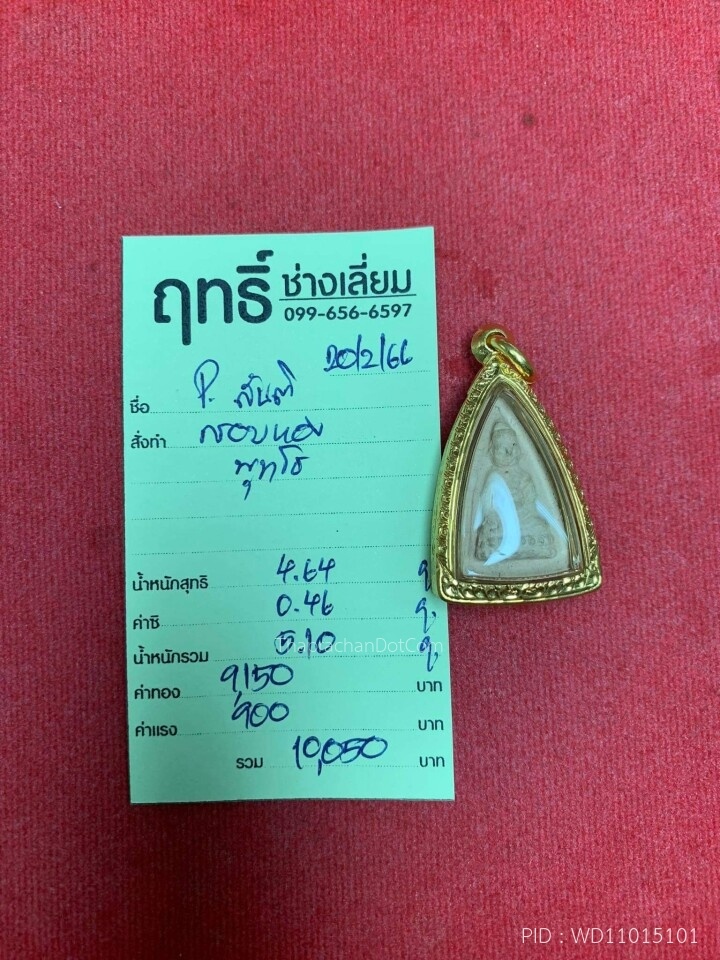 ฤทธิ์ ช่างเลี่ยม
099-656-6597
20/2/66
ชื่อ P. สันติ
สั่งทำ กรอบทอง
พุทโธ
น้ำหนักสุทธิ 4.64 g
ค่าซิ 0.46 g.
น้ำหนักรวม 5.10 g.
ThaprachanDotCom
ค่าทอง 9,150 บาท
ค่าแรง 900 บาท
รวม 10,050 บาท
PID : WD11015101